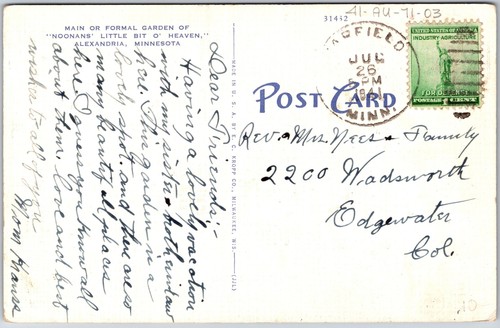 MAIN OR FORMAL GARDEN OF
"NOONANS' LITTLE BIT O' HEAVEN,"
ALEXANDRIA, MINNESOTA
31442
41-AU-71-03
Dear Friends:-
Having a lovely vacation
with my sister & brother in law
here. This garden is a
lovely spot, and there are so
many beautiful places
here. I guess you know all
about them. Love and best
wishes to all of you
Mom
MADE IN U.S.A. BY E. C. KROPP CO., MILWAUKEE, WIS.
POST CARD
26
PM
1941
MINN.
UNITED STATES OF AMERICA
INDUSTRY AGRICULTURE
FOR DEFENSE
POSTAGE 1 CENT
Rev. & Mrs. Nees & Family
2200 Wadsworth
Edgewater
Col.